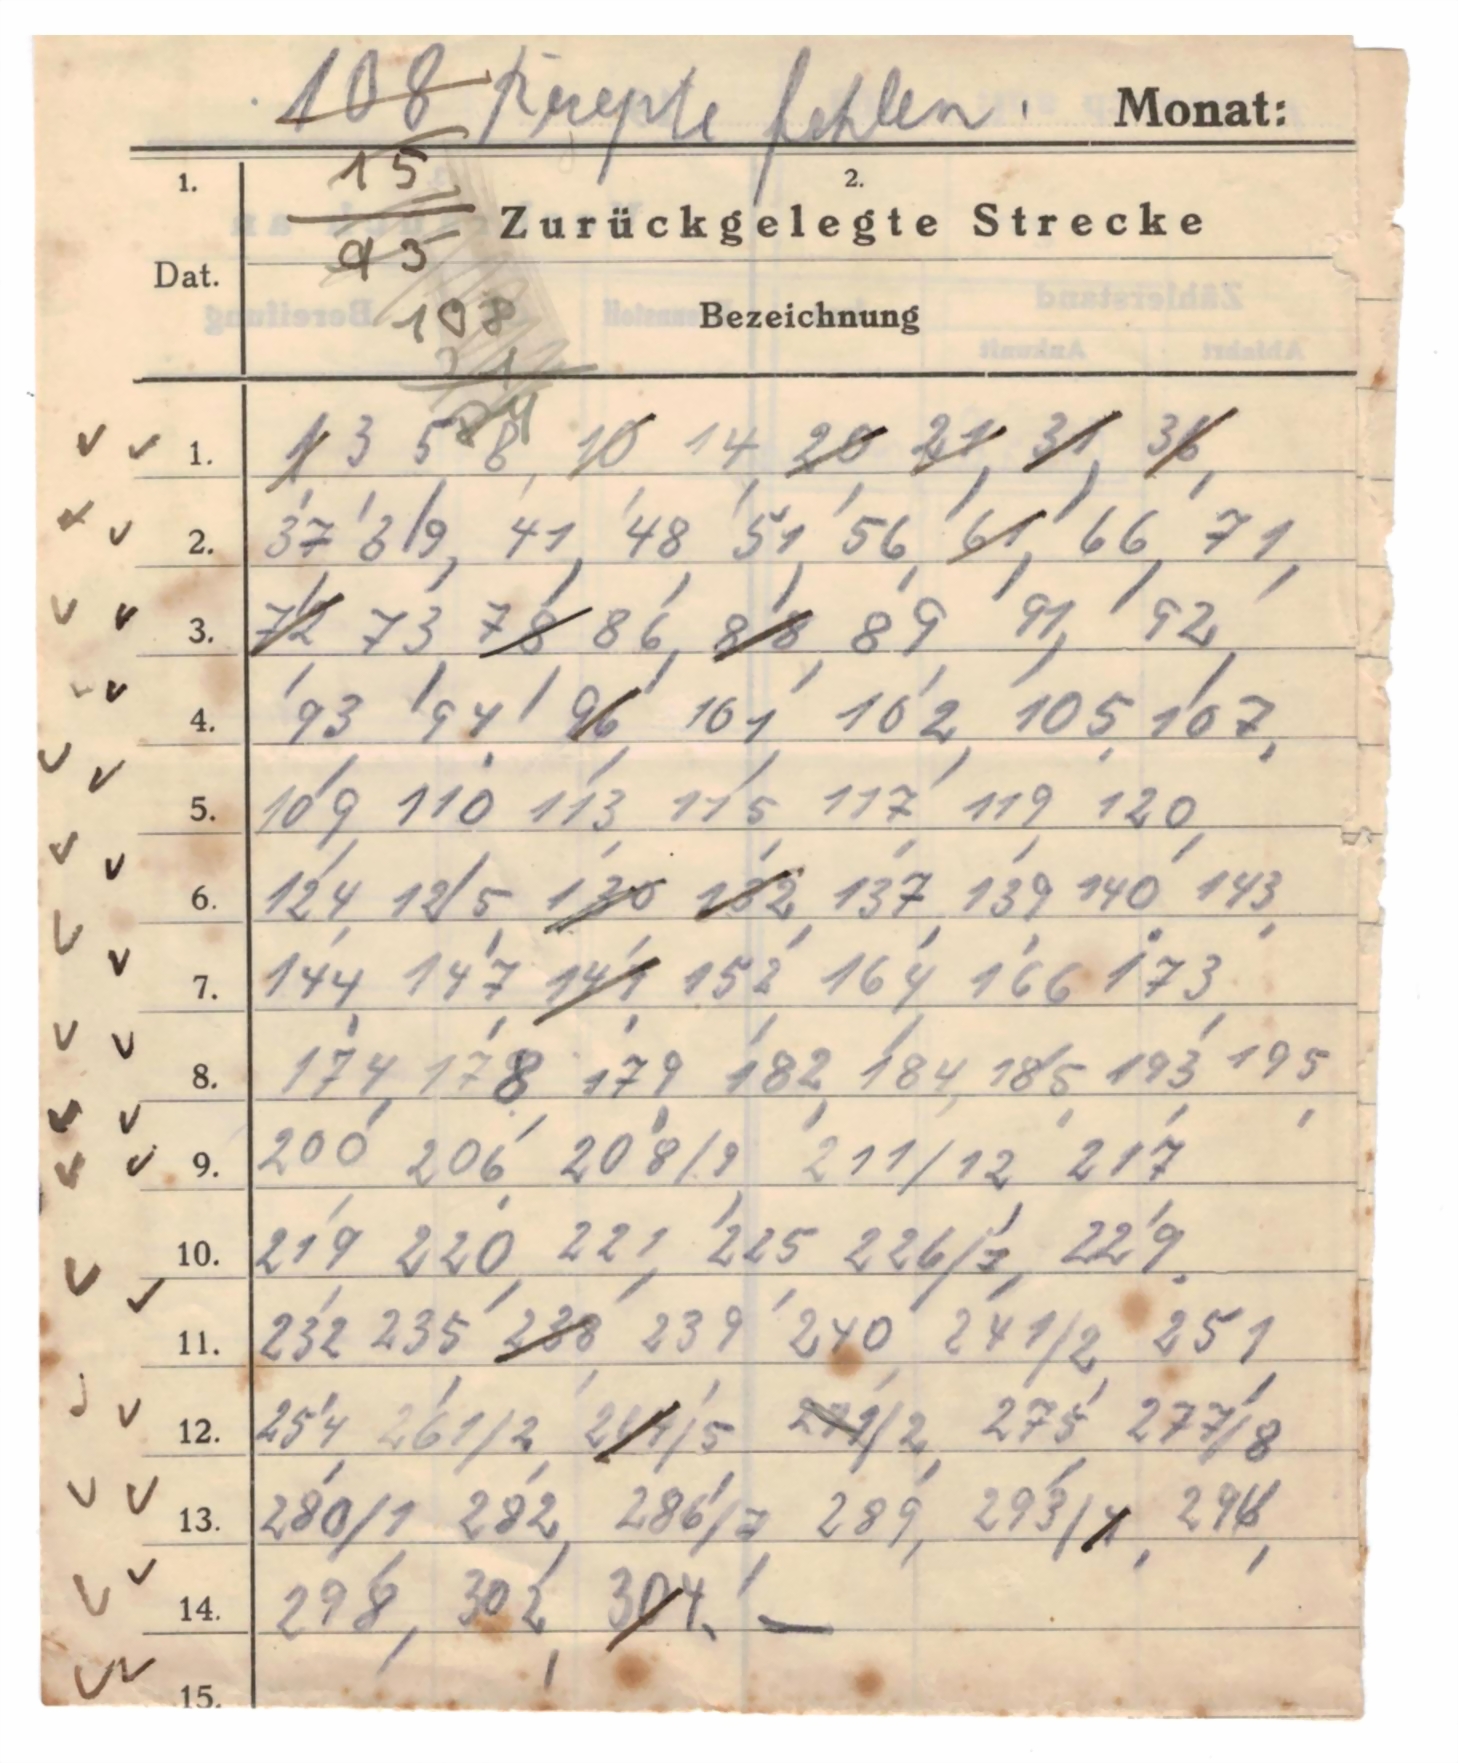 108 Rezepte fehlen. Monat:
1. 15 2.
Zurückgelegte Strecke
95
Dat.
108 Bezeichnung
21
1. 1 3 5 8, 10 14, 20 21, 31, 36,
2. 37 38/9, 41, 48 51, 56, 61, 66, 71,
3. 72 73 78 86, 88, 89 91, 92,
4. 93 94 96, 101, 102, 105, 107,
5. 109, 110 113, 115 117 119 120,
6. 124, 12/5 130 132, 137, 139 140 143,
7. 144 147 152 164 166 173
8. 174, 178 179 182, 184, 185 193 195
9. 200 206 208/9, 211/12 217
10. 219 220, 221, 225 226/7, 229,
11. 232 235 238 239 240, 241/2, 251
12. 254 261/2, 264/5 271/2, 275 277/8
13. 280/1 282, 286/7, 289, 293/4, 296,
14. 298, 302, 304. —
15.